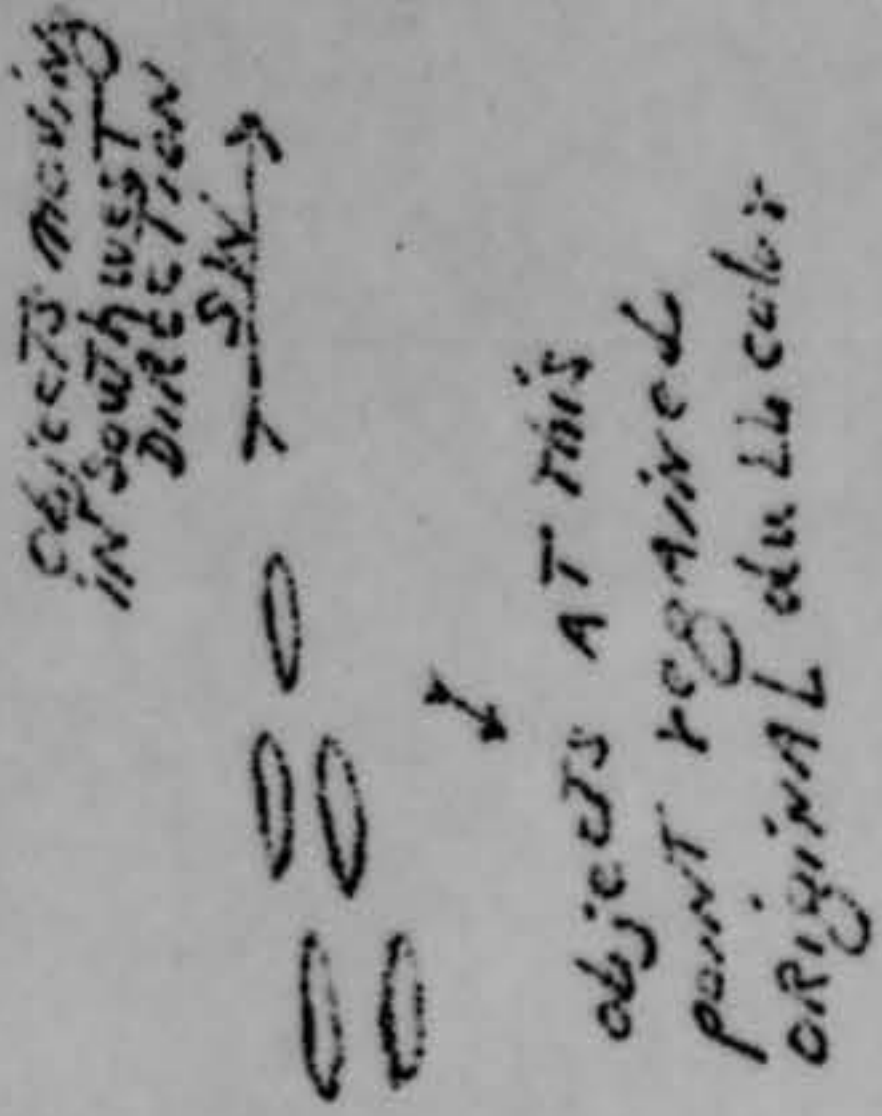 objects moving
in southwest
DIRECTION
SW
objects AT this
point regained
ORiginAL duLL color